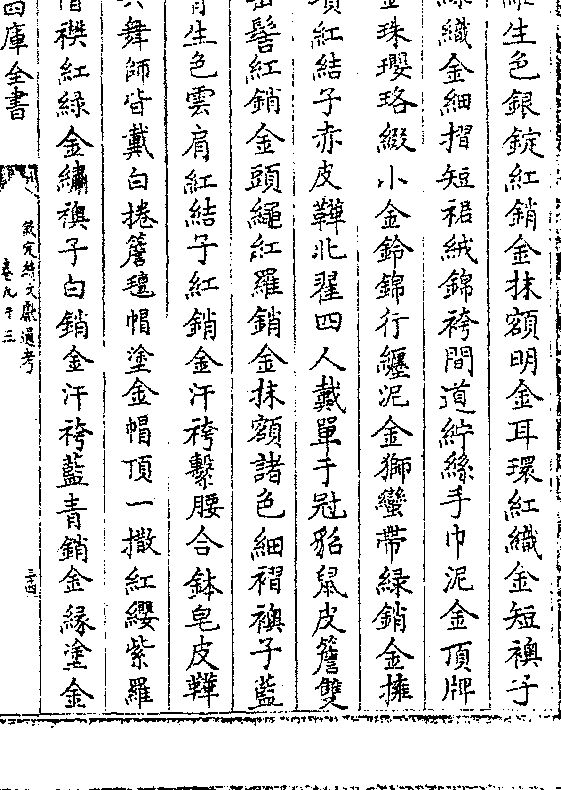 生色銀錠紅銷金抹額明金耳環紅織金短襖子
織金細摺短裙絨錦袴間道紵絲手巾泥金頂牌
珠瓔珞綴小金鈴錦行纏泥金獅蠻帶綠銷金擁
項紅結子赤皮鞾北翟四人戴單于冠貂鼠皮簷雙
髻紅銷金頭繩紅羅銷金抹額諸色細褶襖子藍
生色雲肩紅結子紅銷金汗袴繫腰合鉢皂皮鞾
舞師皆戴白捲簷氊帽塗金帽頂一撒紅纓紫羅
襈紅綠金繡襖子白銷金汗袴藍青銷金緣塗金
四庫全書
欽定續文獻通考
卷九十三
三四